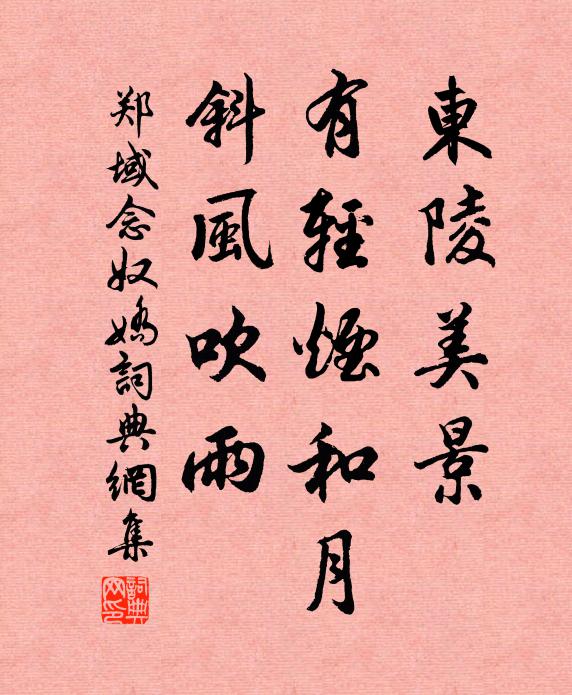 東陵美景
有輕煙和月
斜風吹雨
郑域念奴嬌詞典網集
詞典網印